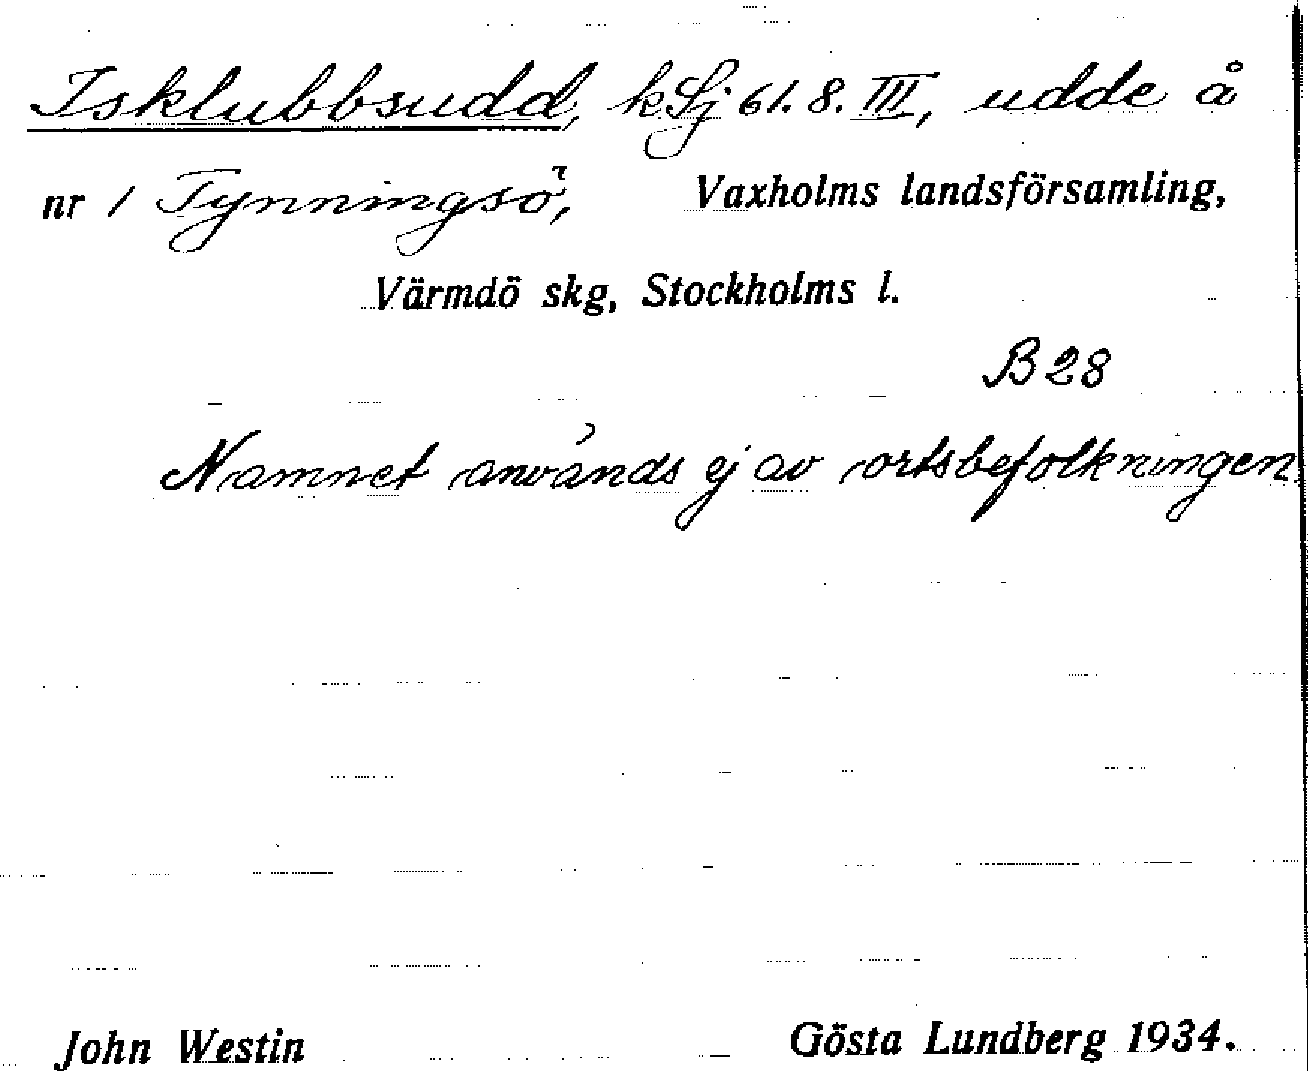 Isklubbsudd, kSj 61. 8. III, udde å
nr 1 Tynningsö, Vaxholms landsförsamling,
Värmdö skg, Stockholms l.
B 28
Namnet används ej av ortsbefolkningen
John Westin Gösta Lundberg 1934.